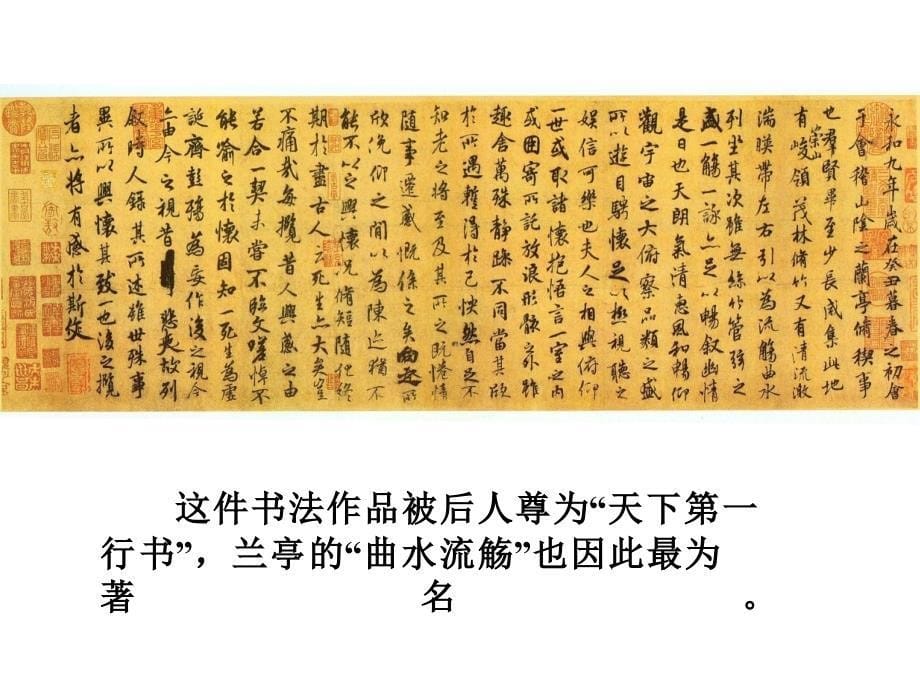 永和九年歲在癸丑暮春之初會
于會稽山陰之蘭亭脩稧事
也羣賢畢至少長咸集此地
有崇山峻領茂林脩竹又有清流激
湍暎帶左右引以為流觴曲水
列坐其次雖無絲竹管弦之
盛一觴一詠亦足以暢敘幽情
是日也天朗氣清惠風和暢仰
觀宇宙之大俯察品類之盛
所以遊目騁懷足以極視聽之
娛信可樂也夫人之相與俯仰
一世或取諸懷抱悟言一室之內
或因寄所託放浪形骸之外雖
趣舍萬殊靜躁不同當其欣
於所遇蹔得於己怏然自足不
知老之將至及其所之既惓情
隨事遷感慨係之矣向之所
欣俛仰之閒以為陳迹猶不
能不以之興懷況脩短隨化終
期於盡古人云死生亦大矣豈
不痛哉每攬昔人興感之由
若合一契未嘗不臨文嗟悼不
能喻之於懷固知一死生為虛
誕齊彭殤為妄作後之視今
亦由今之視昔悲夫故列
敘時人錄其所述雖世殊事
異所以興懷其致一也後之攬
者亦將有感於斯文
这件书法作品被后人尊为“天下第一
行书”，兰亭的“曲水流觞”也因此最为
著名。